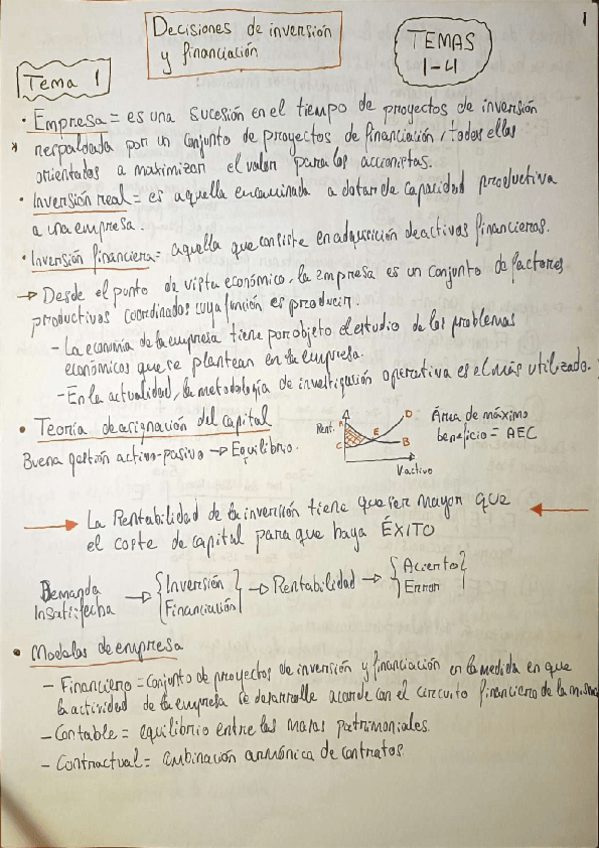 1
Decisiones de inversión
y financiación
TEMAS
1-4
Tema 1
• Empresa = es una sucesión en el tiempo de proyectos de inversión
* respaldada por un conjunto de proyectos de financiación, todos ellos
orientados a maximizar el valor para los accionistas.
• Inversión real = es aquella encaminada a dotar de capacidad productiva
a una empresa.
• Inversión financiera = aquella que consiste en adquisición de activos financieros.
→ Desde el punto de vista económico, la empresa es un conjunto de factores
productivos coordinados cuya función es producir.
- La economía de la empresa tiene por objeto el estudio de los problemas
económicos que se plantean en la empresa.
- En la actualidad, la metodología de investigación operativa es el más utilizado.
• Teoría de asignación del capital
Buena gestión activo-pasivo → Equilibrio.
Rent.
A
C
E
D
B
V activo
Área de máximo
beneficio = AEC
→ La Rentabilidad de la inversión tiene que ser mayor que ←
el coste de capital para que haya ÉXITO
Demanda Insatisfecha → {Inversión Financiación} → Rentabilidad → {Acierto Error}
• Modelos de empresa
- Financiero = conjunto de proyectos de inversión y financiación en la medida en que
la actividad de la empresa se desarrolle acorde con el circuito financiero de la misma
- Contable = equilibrio entre las masas patrimoniales.
- Contractual = combinación armónica de contratos.